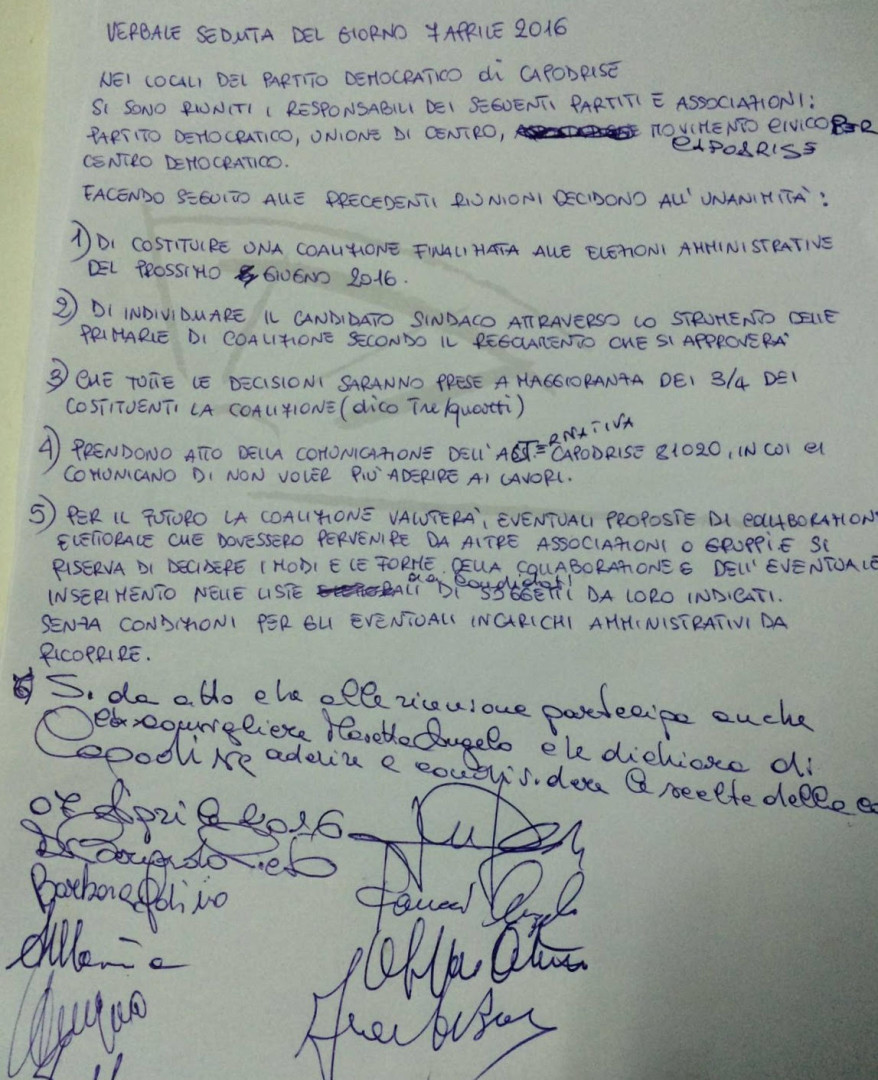 VERBALE SEDUTA DEL GIORNO 7 APRILE 2016
NEI LOCALI DEL PARTITO DEMOCRATICO di CAPODRISE
SI SONO RIUNITI I RESPONSABILI DEI SEGUENTI PARTITI E ASSOCIAZIONI:
PARTITO DEMOCRATICO, UNIONE DI CENTRO, MOVIMENTO CIVICO PER
CAPODRISE
CENTRO DEMOCRATICO.
FACENDO SEGUITO ALLE PRECEDENTI RIUNIONI DECIDONO ALL'UNANIMITA':
1) DI COSTITUIRE UNA COALIZIONE FINALIZZATA ALLE ELEZIONI AMMINISTRATIVE
DEL PROSSIMO GIUGNO 2016.
2) DI INDIVIDUARE IL CANDIDATO SINDACO ATTRAVERSO LO STRUMENTO DELLE
PRIMARIE DI COALIZIONE SECONDO IL REGOLAMENTO CHE SI APPROVERA'
3) CHE TUTTE LE DECISIONI SARANNO PRESE A MAGGIORANZA DEI 3/4 DEI
COSTITUENTI LA COALIZIONE (dico Tre/quarti)
4) PRENDONO ATTO DELLA COMUNICAZIONE DELL'ALTERNATIVA CAPODRISE 81020, IN CUI CI
COMUNICANO DI NON VOLER PIU' ADERIRE AI LAVORI.
5) PER IL FUTURO LA COALIZIONE VALUTERA', EVENTUALI PROPOSTE DI COLLABORAZION
ELETTORALE CHE DOVESSERO PERVENIRE DA ALTRE ASSOCIAZIONI O GRUPPI E SI
RISERVA DI DECIDERE I MODI E LE FORME DELLA COLLABORAZIONE E DELL'EVENTUALE
INSERIMENTO NELLE LISTE DI SOGGETTI DA LORO INDICATI.
SENZA CONDIZIONI PER GLI EVENTUALI INCARICHI AMMINISTRATIVI DA
RICOPRIRE.
6) Si da atto che alla riunione partecipa anche
Angelo che dichiara di
aderire e condividere le scelte della
07 Aprile 2016
Barbara